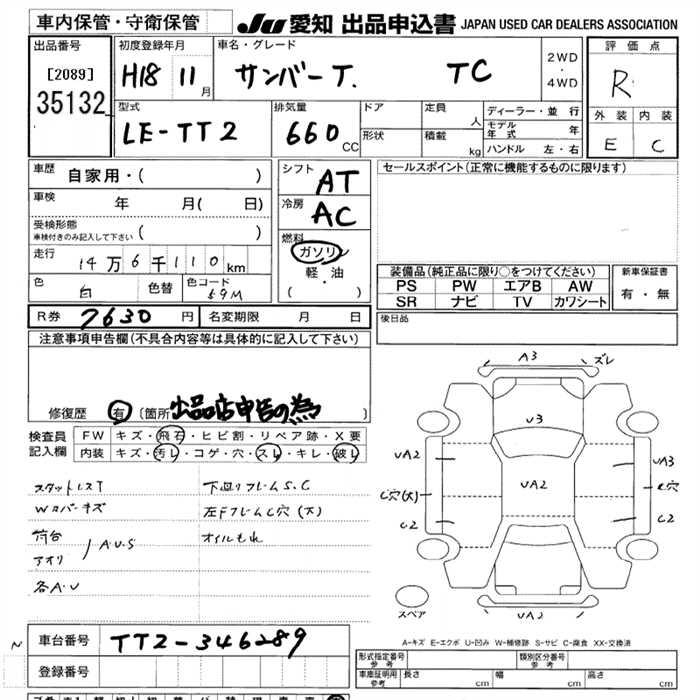 車内保管・守衛保管
JU 愛知 出品申込書 JAPAN USED CAR DEALERS ASSOCIATION
出品番号
[2089]
35132
初度登録年月
H18 11月
車名・グレード
サンバーT. TC
2WD・4WD
評価点
R
外装 内装
E C
型式
LE-TT2
排気量
660cc
ドア
形状
定員 人
積載 kg
ディーラー・並行
モデル年式 年
ハンドル 左・右
車歴 自家用・( )
車検 年 月( 日)
受検形態
車検付きのみ記入して下さい ( )
走行 14万6千110km
色 白 色替 色コード 69M
シフト AT
冷房 AC
燃料
ガソリン
軽・油
( )
セールスポイント(正常に機能するものに限ります)
装備品(純正品に限り○をつけてください)
PS PW エアB AW
SR ナビ TV カワシート
新車保証書
有・無
R券 7630円 名変期限 月 日
後日品
注意事項申告欄(不具合内容等は具体的に記入して下さい)
修復歴 有 (箇所 出品店申告の為 )
検査員記入欄
FW キズ・飛石・ヒビ割・リペア跡・X要
内装 キズ・汚レ・コゲ・穴・スレ・キレ・破レ
スタットレスT 下廻リフレームS.C
Wカバーキズ 左FフレームC穴(大)
荷台 オイルもれ
アオリ / A.U.S
各A.U
A3 ズレ
U3
UA2 UA3
C穴(大) UA2 C穴
C2 C2
スペア UA2
A-キズ E-エクボ U-凹み W-補修跡 S-サビ C-腐食 XX-交換済
N 車台番号 TT2-346289
登録番号
形式指定番号 参考
類別区分番号 参考
車庫証明用 参考 長さ cm 幅 cm 高さ cm